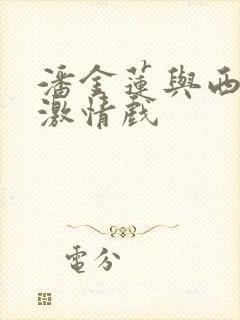 潘金蓮與西
激情戲
電分